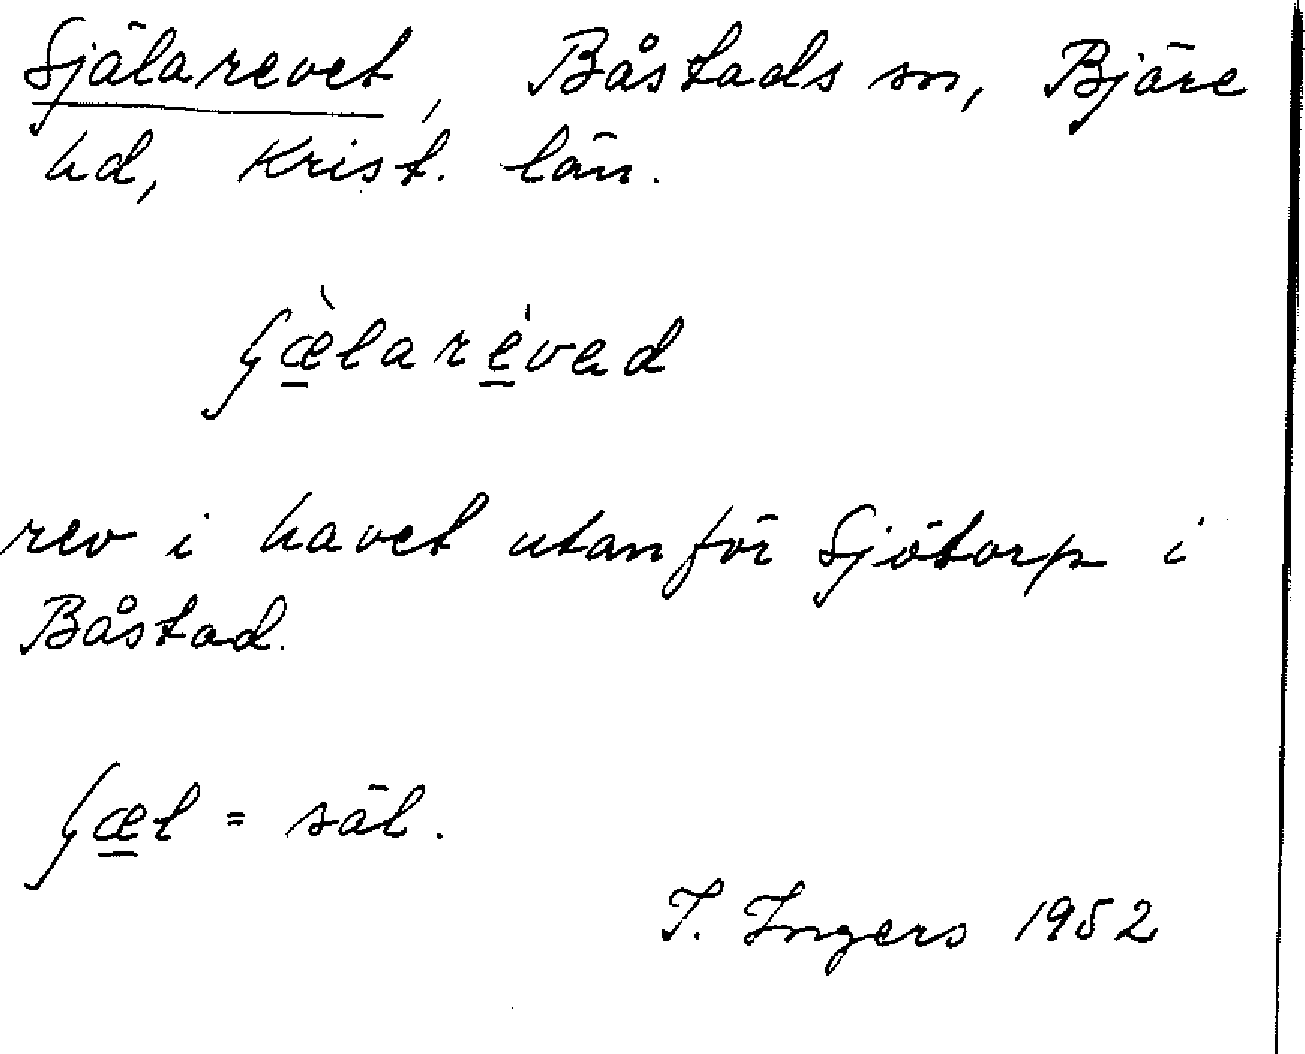 Själarevet, Båstads sn, Bjäre
hd, Krist. län.
ʃæ̠̀larė̠vad
rev i havet utanför Sjötorp i
Båstad.
ʃæ̠l = säl.
I. Ingers 1952